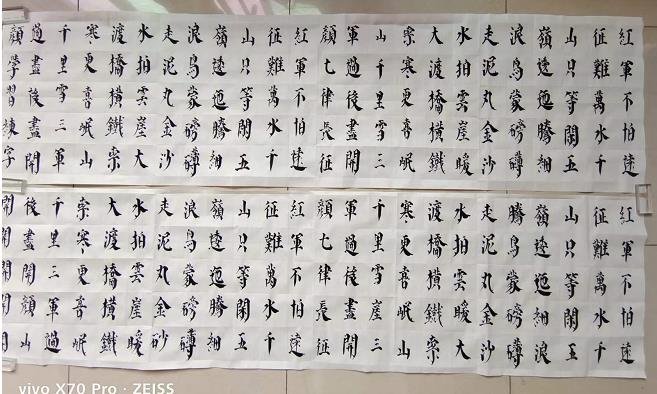 紅軍不怕遠
征難萬水千
山只等閑五
嶺逶迤騰細
浪烏蒙磅礴
走泥丸金沙
水拍雲崖暖
大渡橋橫鐵
索寒更喜岷
山千里雪三
軍過後盡開
顏七律長征
紅軍不怕遠
征難萬水千
山只等閑五
嶺逶迤騰細
浪烏蒙磅礴
走泥丸金沙
水拍雲崖大
渡橋橫鐵索
寒更喜岷山
千里雪三軍
過盡後盡開
顏學習練字
紅軍不怕遠
征難萬水千
山只等閑五
嶺逶迤細浪
騰烏蒙磅礴
走泥丸金沙
水拍雲暖大
渡橋橫鐵索
寒更喜岷山
千里雪崖三
軍過後盡開
顏七律長征
紅軍不怕遠
征難萬水千
山只等閑五
嶺逶迤騰細
浪烏蒙磅礴
走泥丸金砂
水拍雲崖暖
大渡橋橫鐵
索寒更喜岷
千里三軍過
後盡開顏山
vivo X70 Pro · ZEISS